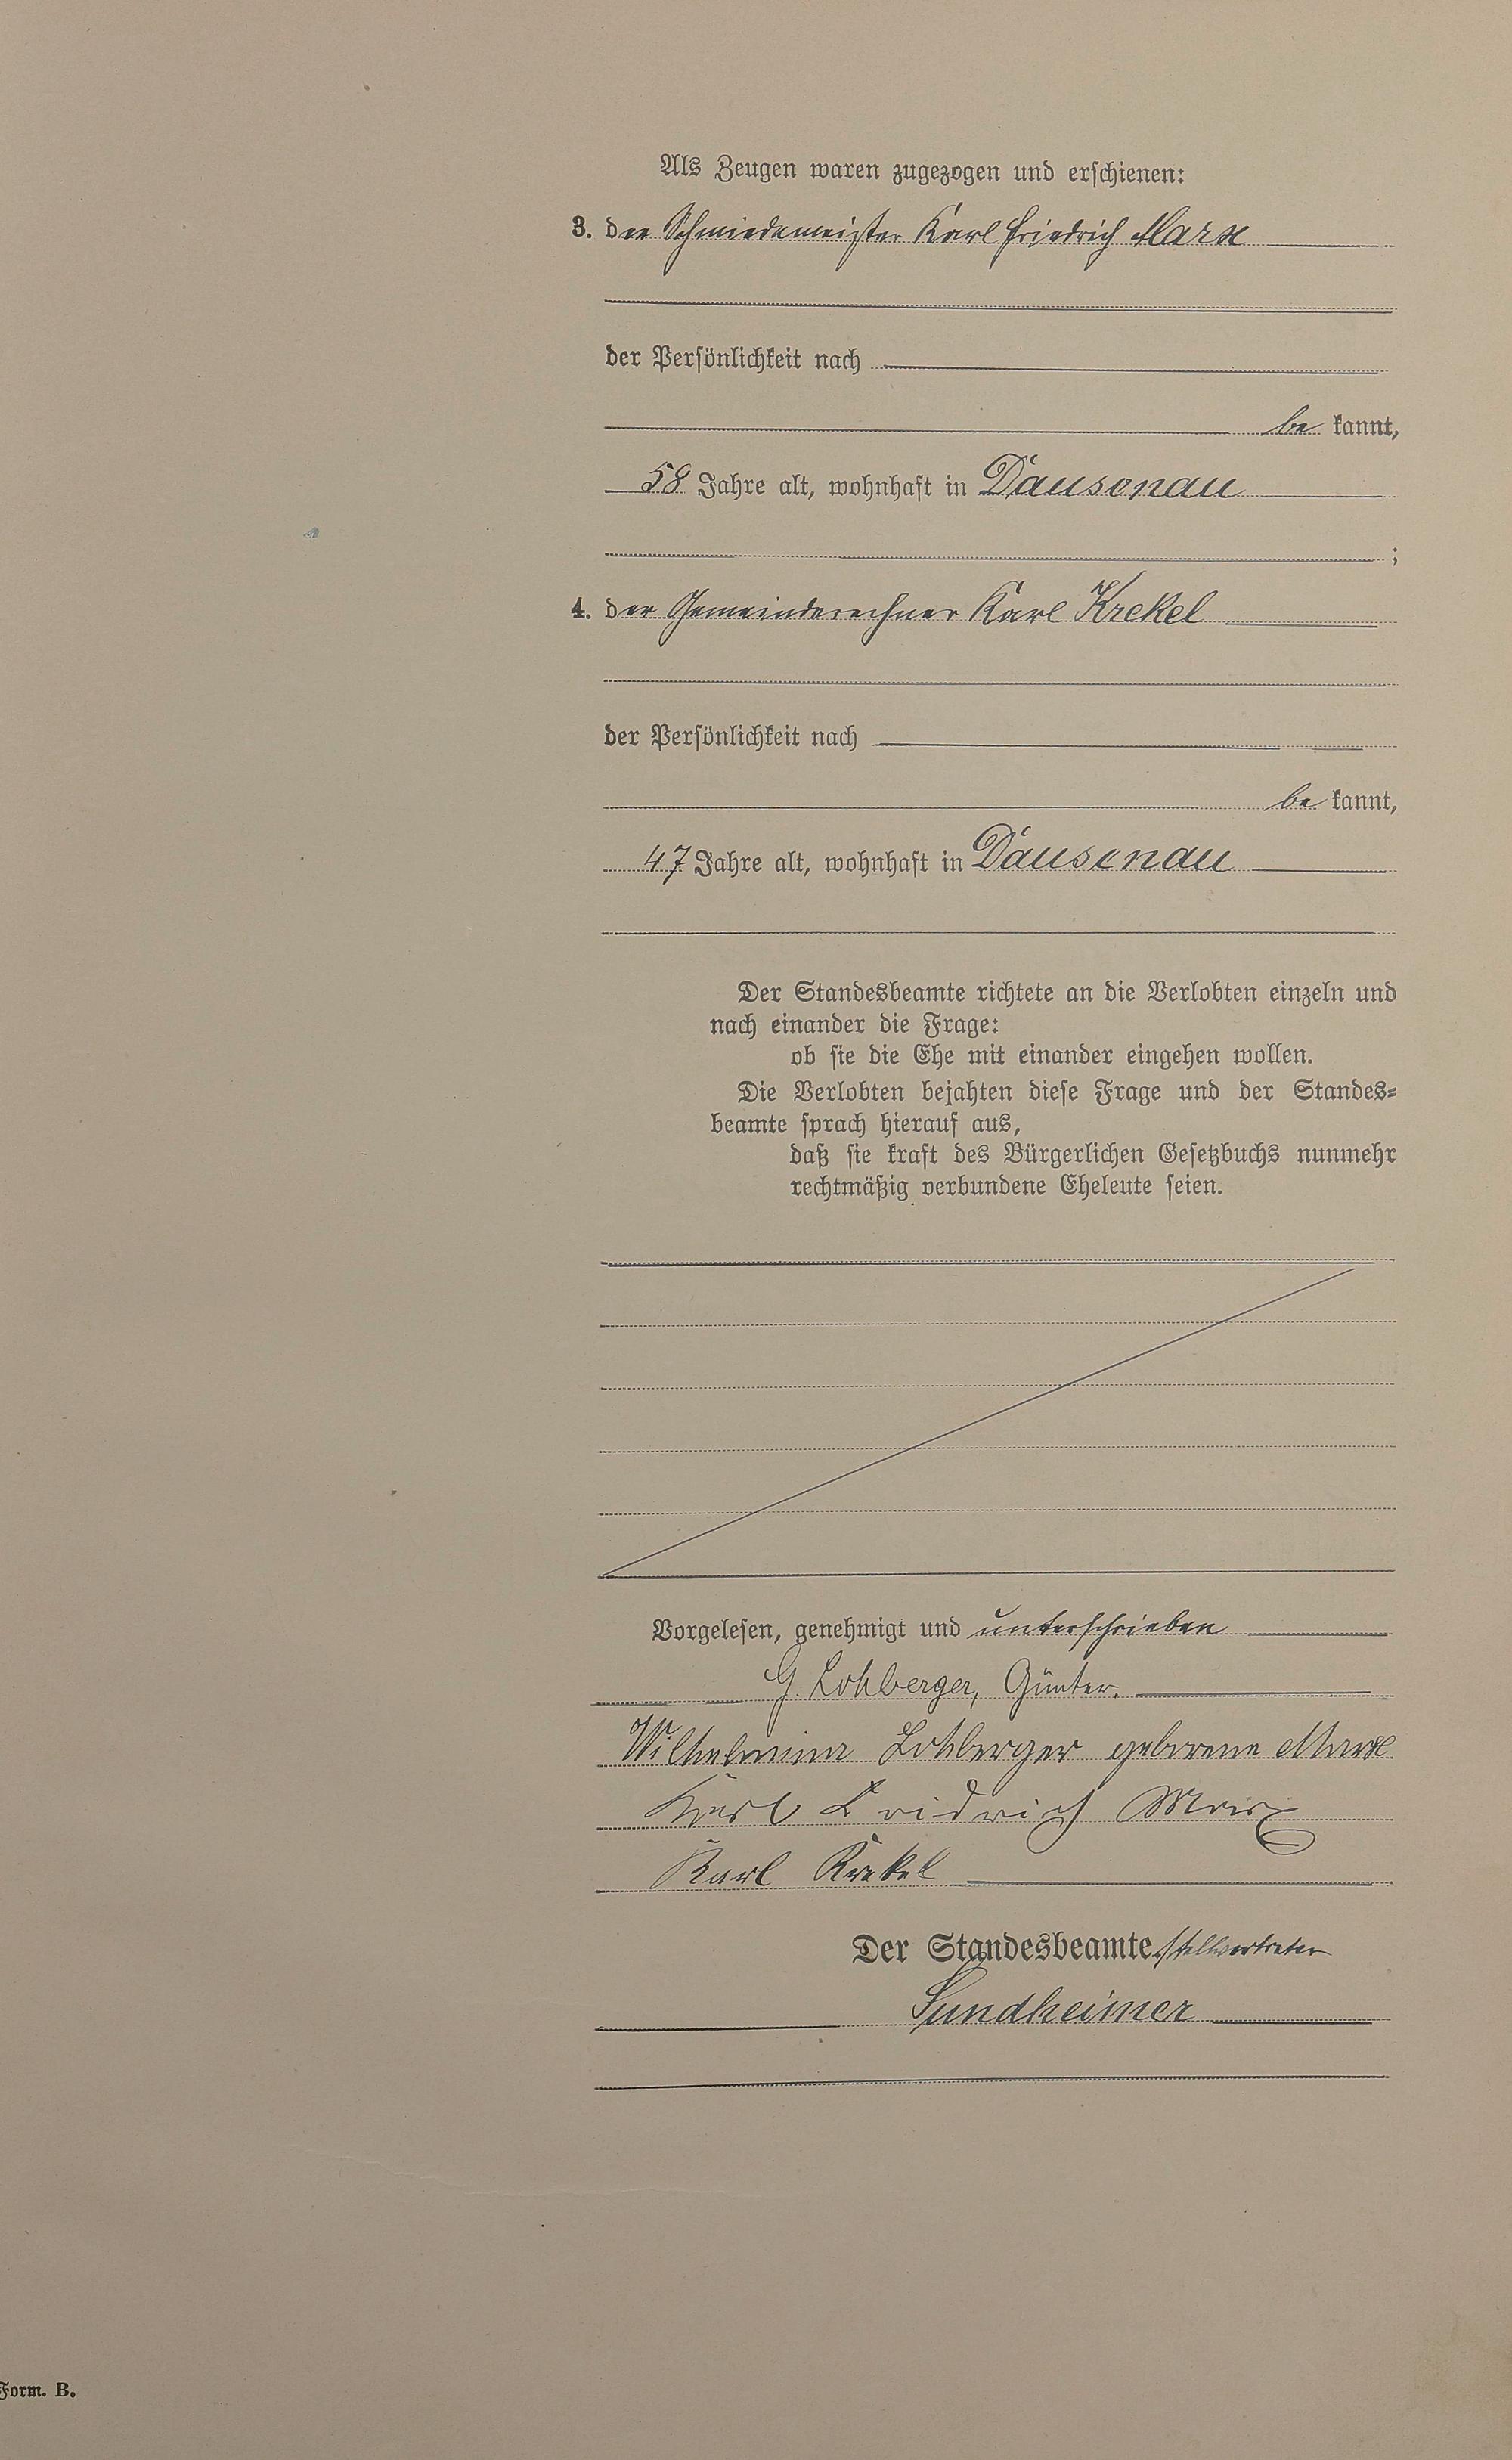 Als Zeugen waren zugezogen und erschienen:
3. der Schmiedemeister Karl Friedrich Marx
der Persönlichkeit nach
be kannt,
58 Jahre alt, wohnhaft in Dausenau
;
4. der Gemeinderechner Karl Krekel
der Persönlichkeit nach
be kannt,
47 Jahre alt, wohnhaft in Dausenau
Der Standesbeamte richtete an die Verlobten einzeln und
nach einander die Frage:
ob sie die Ehe mit einander eingehen wollen.
Die Verlobten bejahten diese Frage und der Standes=
beamte sprach hierauf aus,
daß sie kraft des Bürgerlichen Gesetzbuchs nunmehr
rechtmäßig verbundene Eheleute seien.
Vorgelesen, genehmigt und unterschrieben
G. Lohberger, Günter.
Wilhelmine Lohberger geborene Marx
Karl Fridrich Marx
Karl Krekel
Der Standesbeamte stellvertreter
Sundheimer
Form. B.